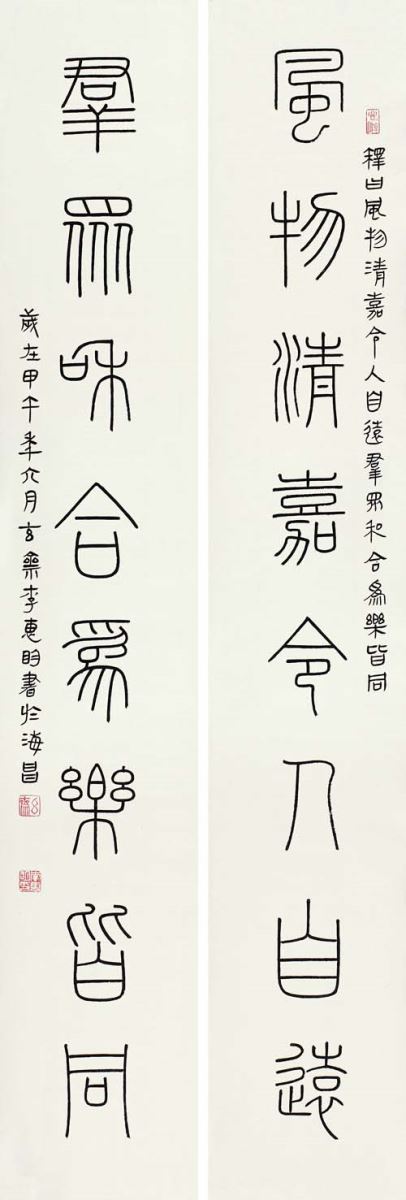 釋曰風物清嘉令人自遠羣眾和合為樂皆同
風物清嘉令人自遠
羣眾咊合為樂皆同
歲在甲午年六月玄
李惠
書於海昌